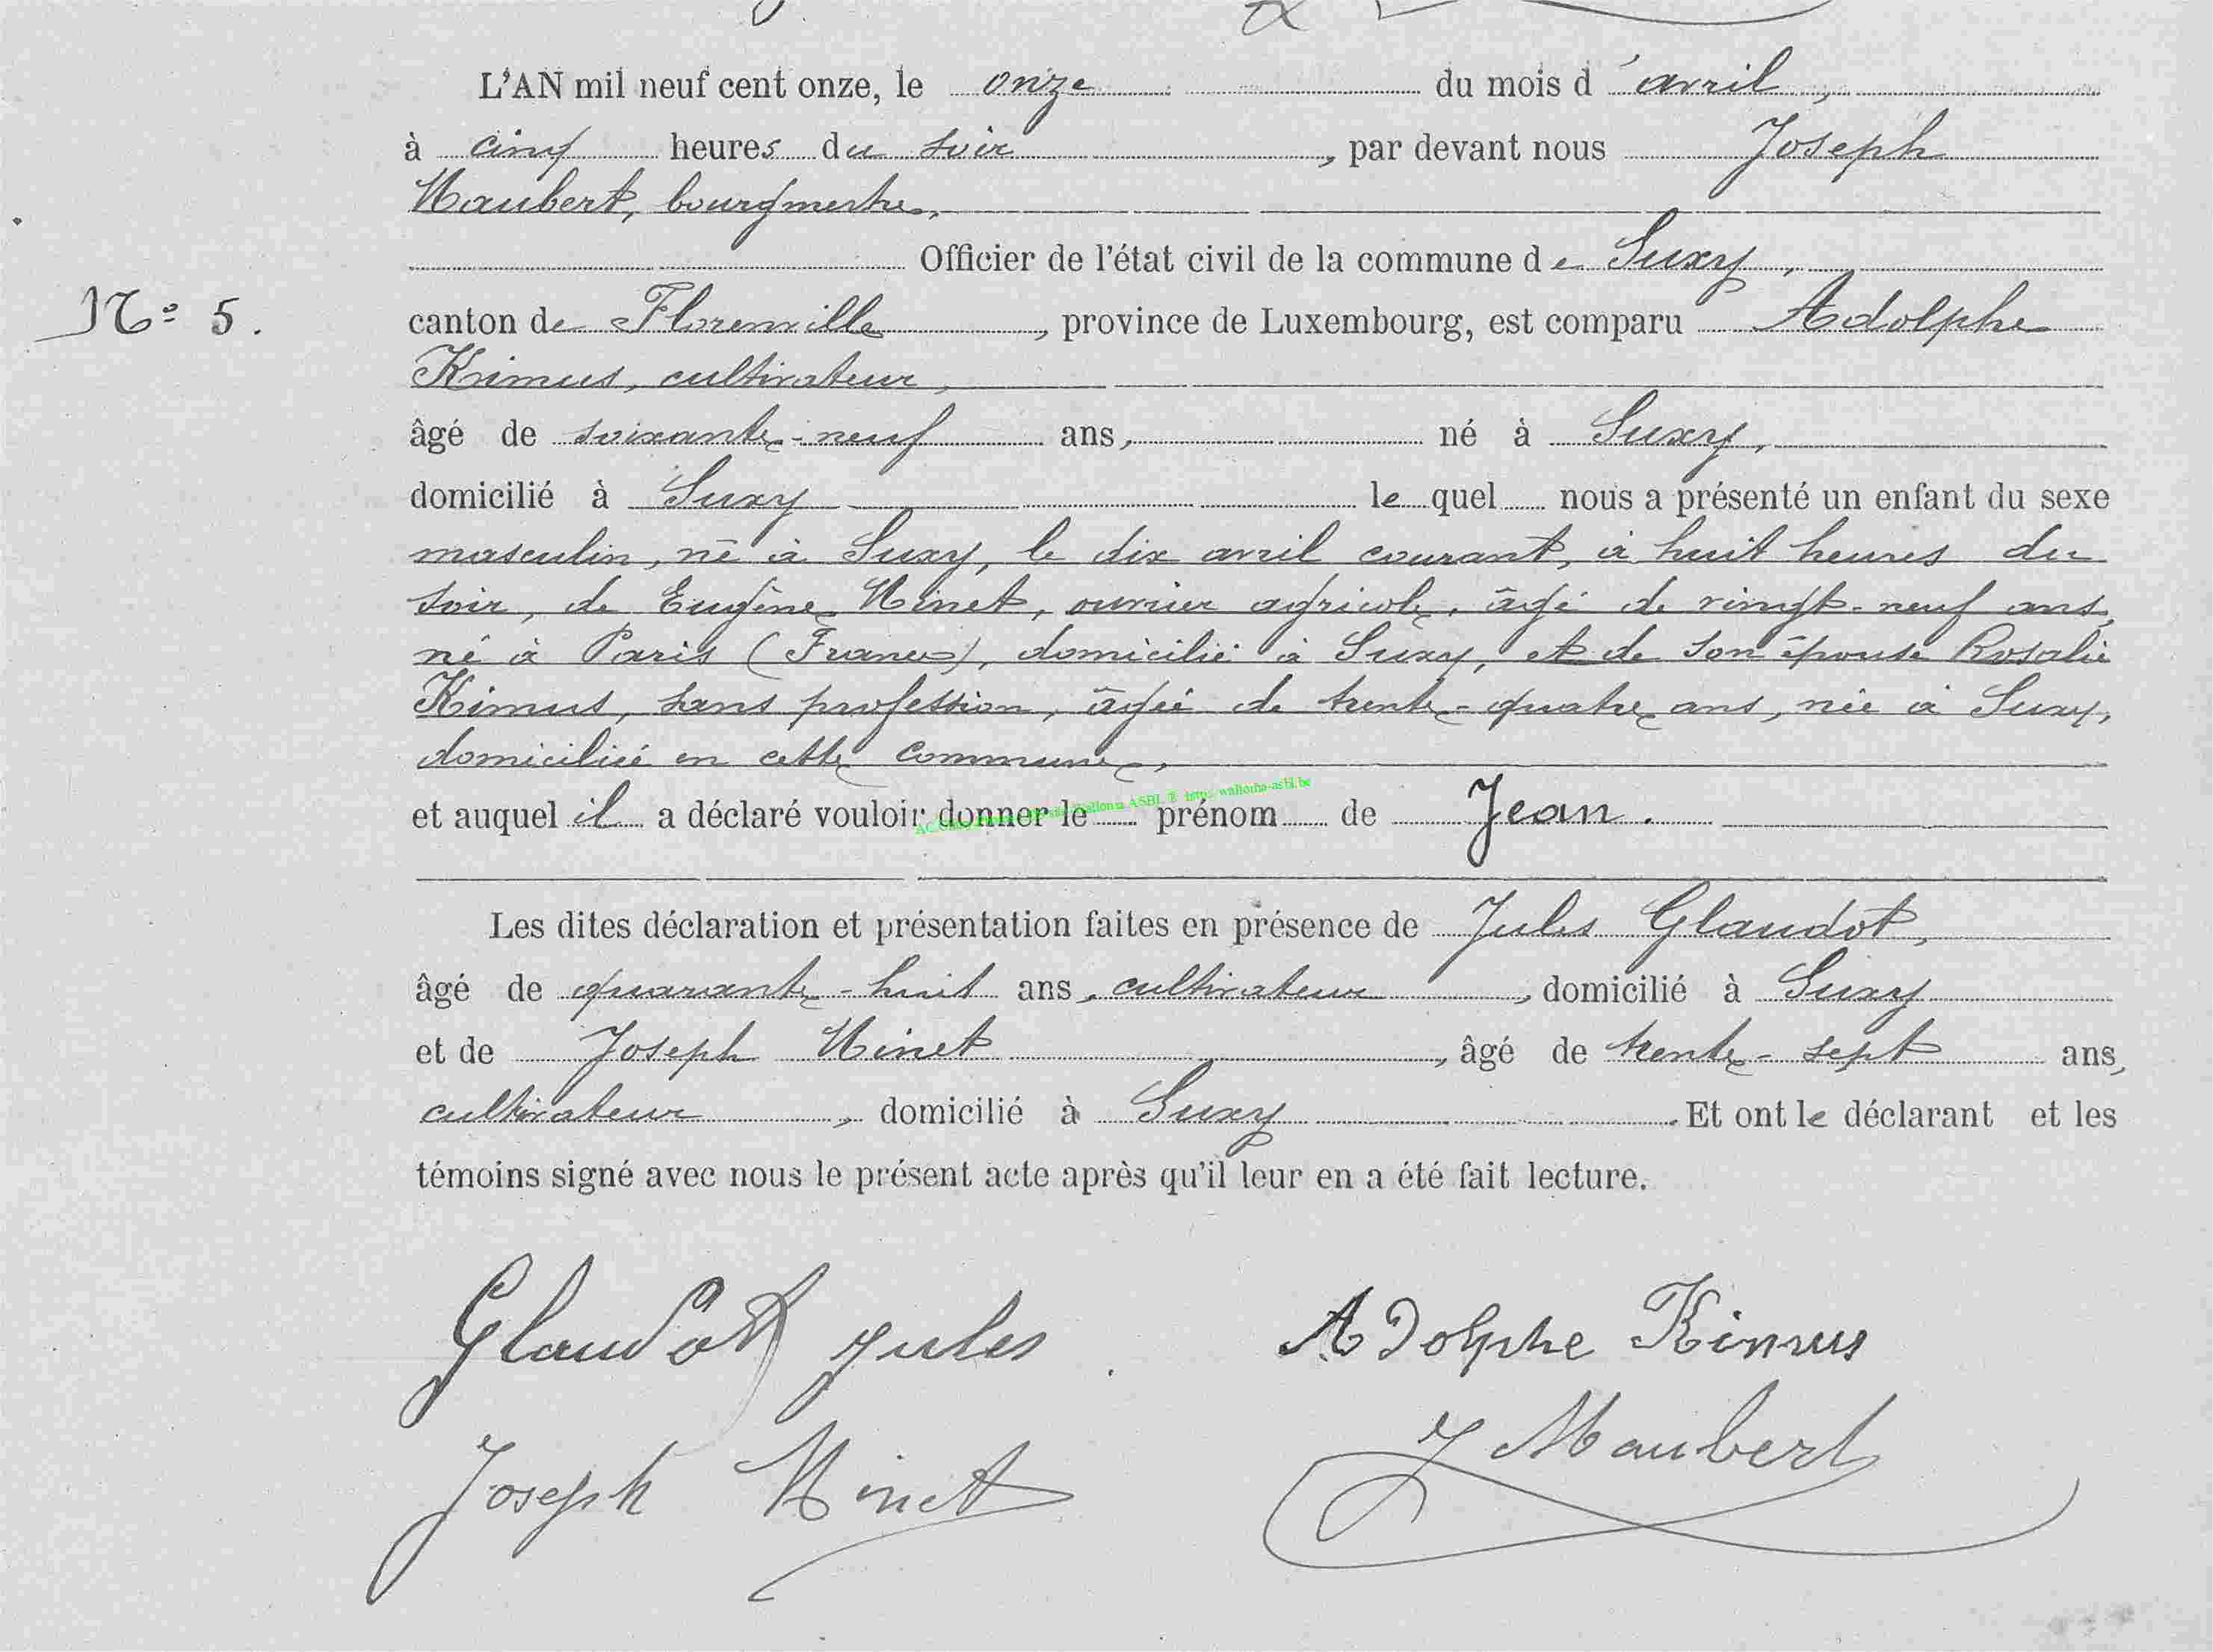 L'AN mil neuf cent onze, le onze du mois d'avril,
à cinq heures du soir, par devant nous Joseph
Maubert, bourgmestre,
Officier de l'état civil de la commune de Suxy,
N° 5.
canton de Florenville, province de Luxembourg, est comparu Adolphe
Kimus, cultivateur,
âgé de soixante-neuf ans, né à Suxy,
domicilié à Suxy lequel nous a présenté un enfant du sexe
masculin, né à Suxy, le dix avril courant, à huit heures du
soir, de Eugène Ninet, ouvrier agricole, âgé de vingt-neuf ans,
né à Paris (France), domicilié à Suxy, et de son épouse Rosalie
Kimus, sans profession, âgée de trente-quatre ans, née à Suxy,
domiciliée en cette commune,
et auquel il a déclaré vouloir donner le prénom de Jean.
Les dites déclaration et présentation faites en présence de Jules Glaudot,
âgé de quarante-huit ans, cultivateur, domicilié à Suxy
et de Joseph Ninet, âgé de trente-sept ans,
cultivateur, domicilié à Suxy. Et ont le déclarant et les
témoins signé avec nous le présent acte après qu'il leur en a été fait lecture.
Glaudot Jules Adolphe Kimus
Joseph Ninet J Maubert